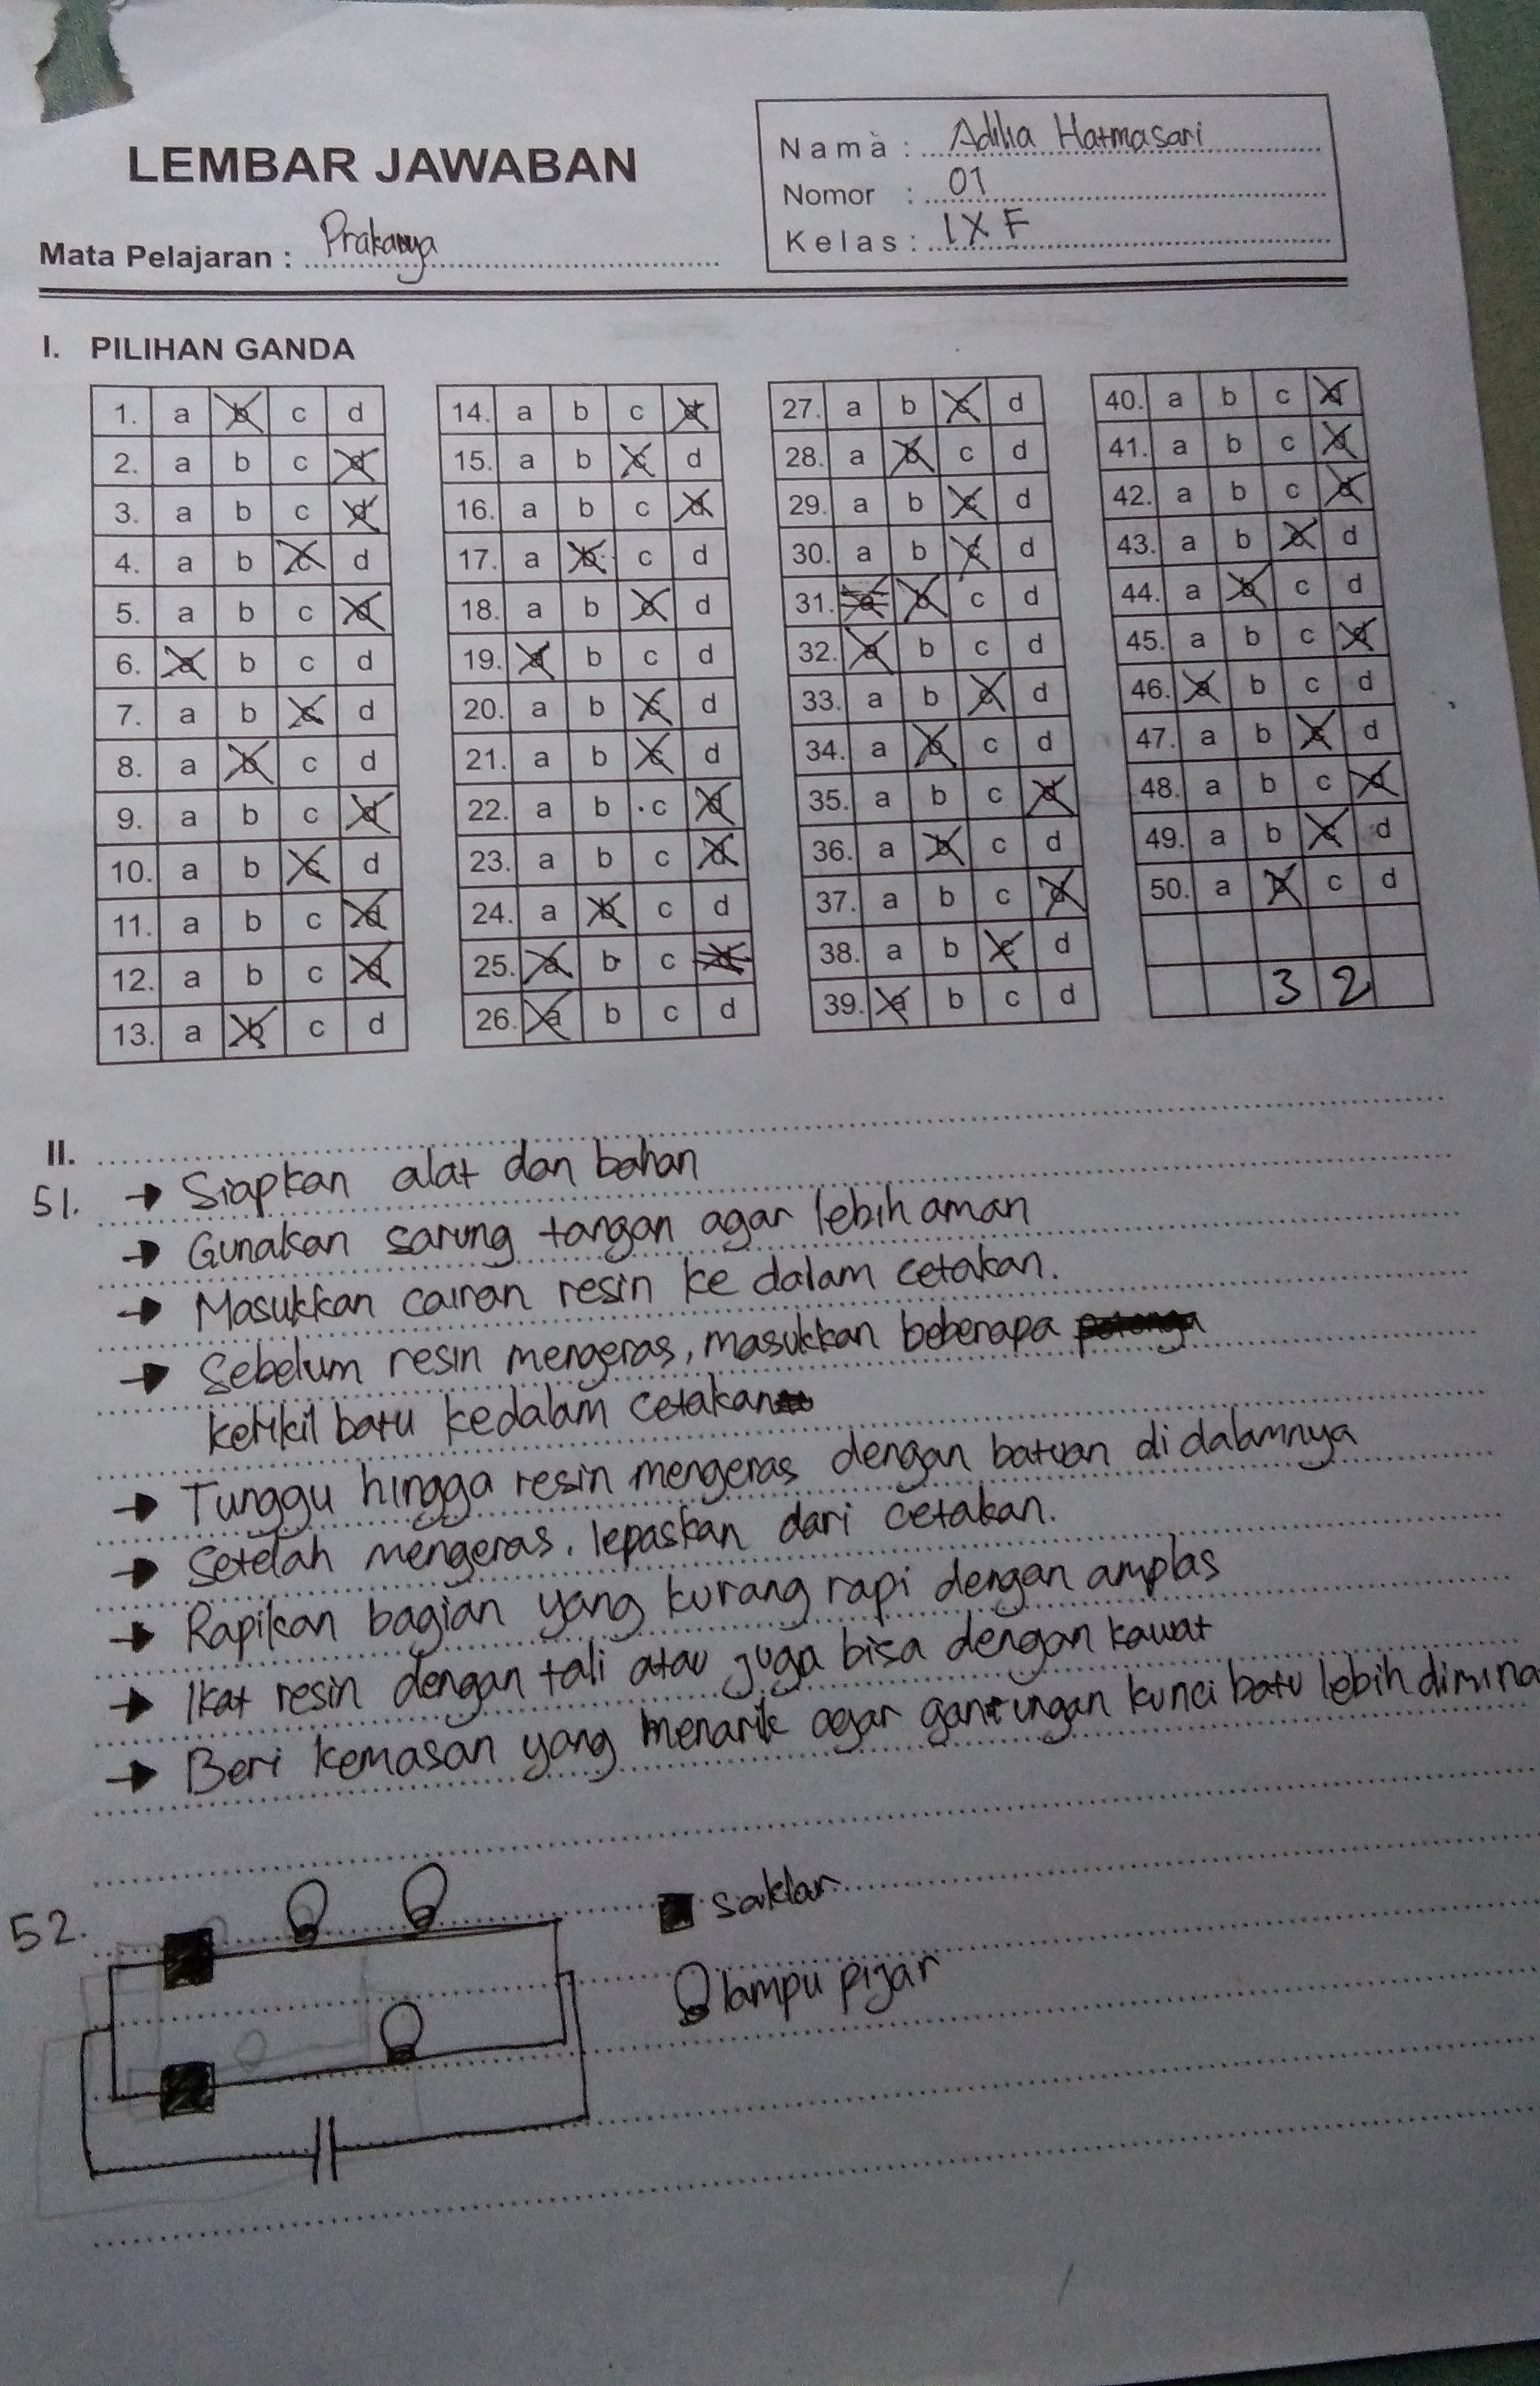 LEMBAR JAWABAN
Mata Pelajaran : Prakarya
Nama : Adilia Hatmasari
Nomor : 01
Kelas : IX F
I. PILIHAN GANDA
1. a b c d
2. a b c d
3. a b c d
4. a b c d
5. a b c d
6. a b c d
7. a b c d
8. a b c d
9. a b c d
10. a b c d
11. a b c d
12. a b c d
13. a b c d
14. a b c d
15. a b c d
16. a b c d
17. a b c d
18. a b c d
19. a b c d
20. a b c d
21. a b c d
22. a b c d
23. a b c d
24. a b c d
25. a b c d
26. a b c d
27. a b c d
28. a b c d
29. a b c d
30. a b c d
31. a b c d
32. a b c d
33. a b c d
34. a b c d
35. a b c d
36. a b c d
37. a b c d
38. a b c d
39. a b c d
40. a b c d
41. a b c d
42. a b c d
43. a b c d
44. a b c d
45. a b c d
46. a b c d
47. a b c d
48. a b c d
49. a b c d
50. a b c d
3 2
II.
51. → Siapkan alat dan bahan
→ Gunakan sarung tangan agar lebih aman
→ Masukkan cairan resin ke dalam cetakan.
→ Sebelum resin mengeras, masukkan beberapa
kerikil batu kedalam cetakan
→ Tunggu hingga resin mengeras dengan batuan di dalamnya
→ Setelah mengeras, lepaskan dari cetakan.
→ Rapikan bagian yang kurang rapi dengan amplas
→ Ikat resin dengan tali atau juga bisa dengan kawat
→ Beri kemasan yang menarik agar gantungan kunci batu lebih dimina
52.
saklar
lampu pijar